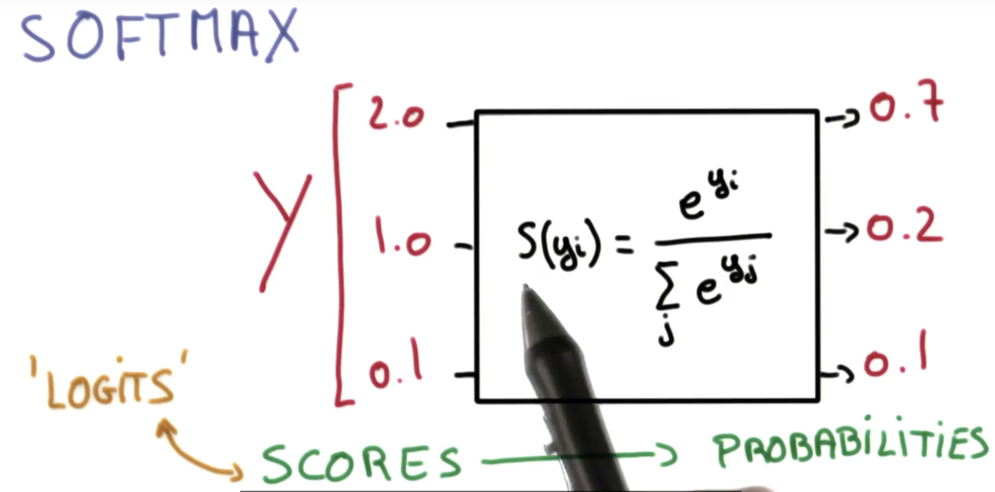 SOFTMAX
Y
2.0
1.0
0.1
S(yᵢ) = e^yᵢ / Σⱼ e^yⱼ
0.7
0.2
0.1
'LOGITS'
SCORES → PROBABILITIES